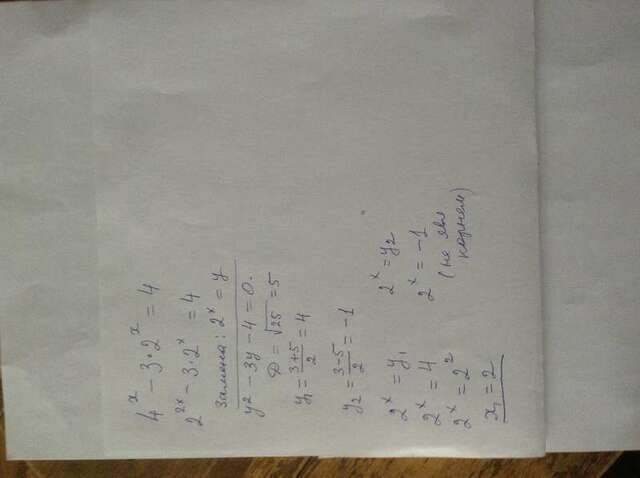 4^x − 3·2^x = 4
2^2x − 3·2^x = 4
Замена: 2^x = y
y² − 3y − 4 = 0.
D = √25 = 5
y₁ = (3+5)/2 = 4
y₂ = (3−5)/2 = −1
2^x = y₁
2^x = 4
2^x = 2²
x₁ = 2
2^x = y₂
2^x = −1
(не явл
корнем)